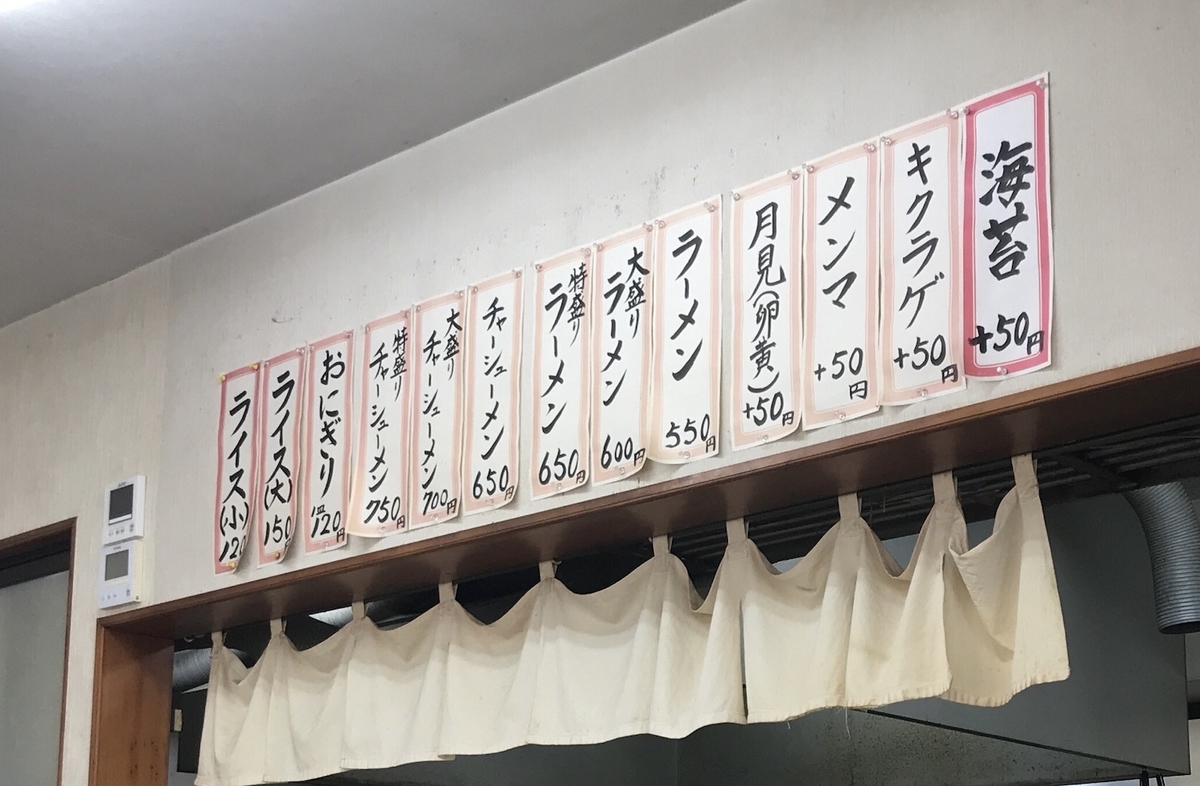 海苔
+50円
キクラゲ
+50円
メンマ
+50円
月見(卵黄)
+50円
ラーメン
550円
大盛り
ラーメン
600円
特盛り
ラーメン
650円
チャーシューメン
650円
大盛り
チャーシューメン
700円
特盛り
チャーシューメン
750円
おにぎり
1皿
120円
ライス(大)
150
ライス(小)
120